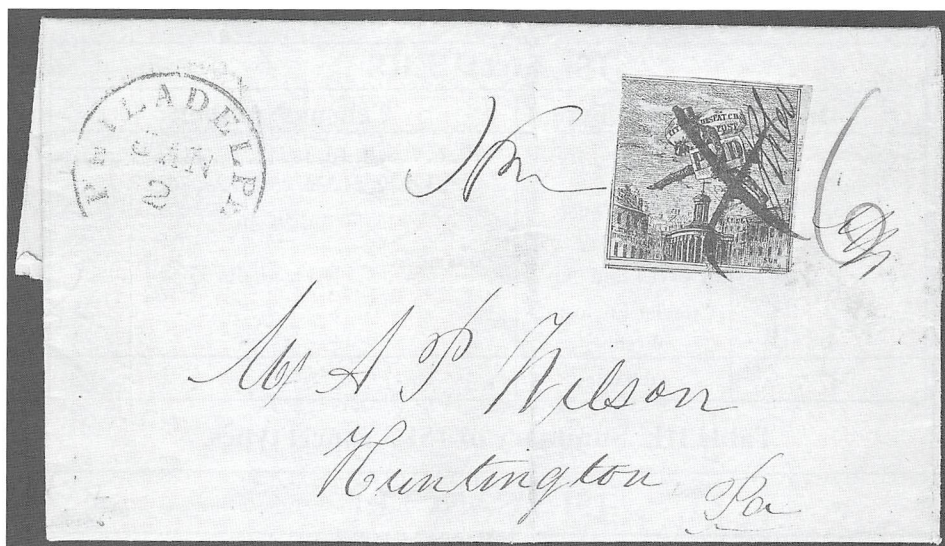 PHILADELPH
JAN
2
DESPATCH
POST
PAID
6
Mr A P Wilson
Huntington
Pa